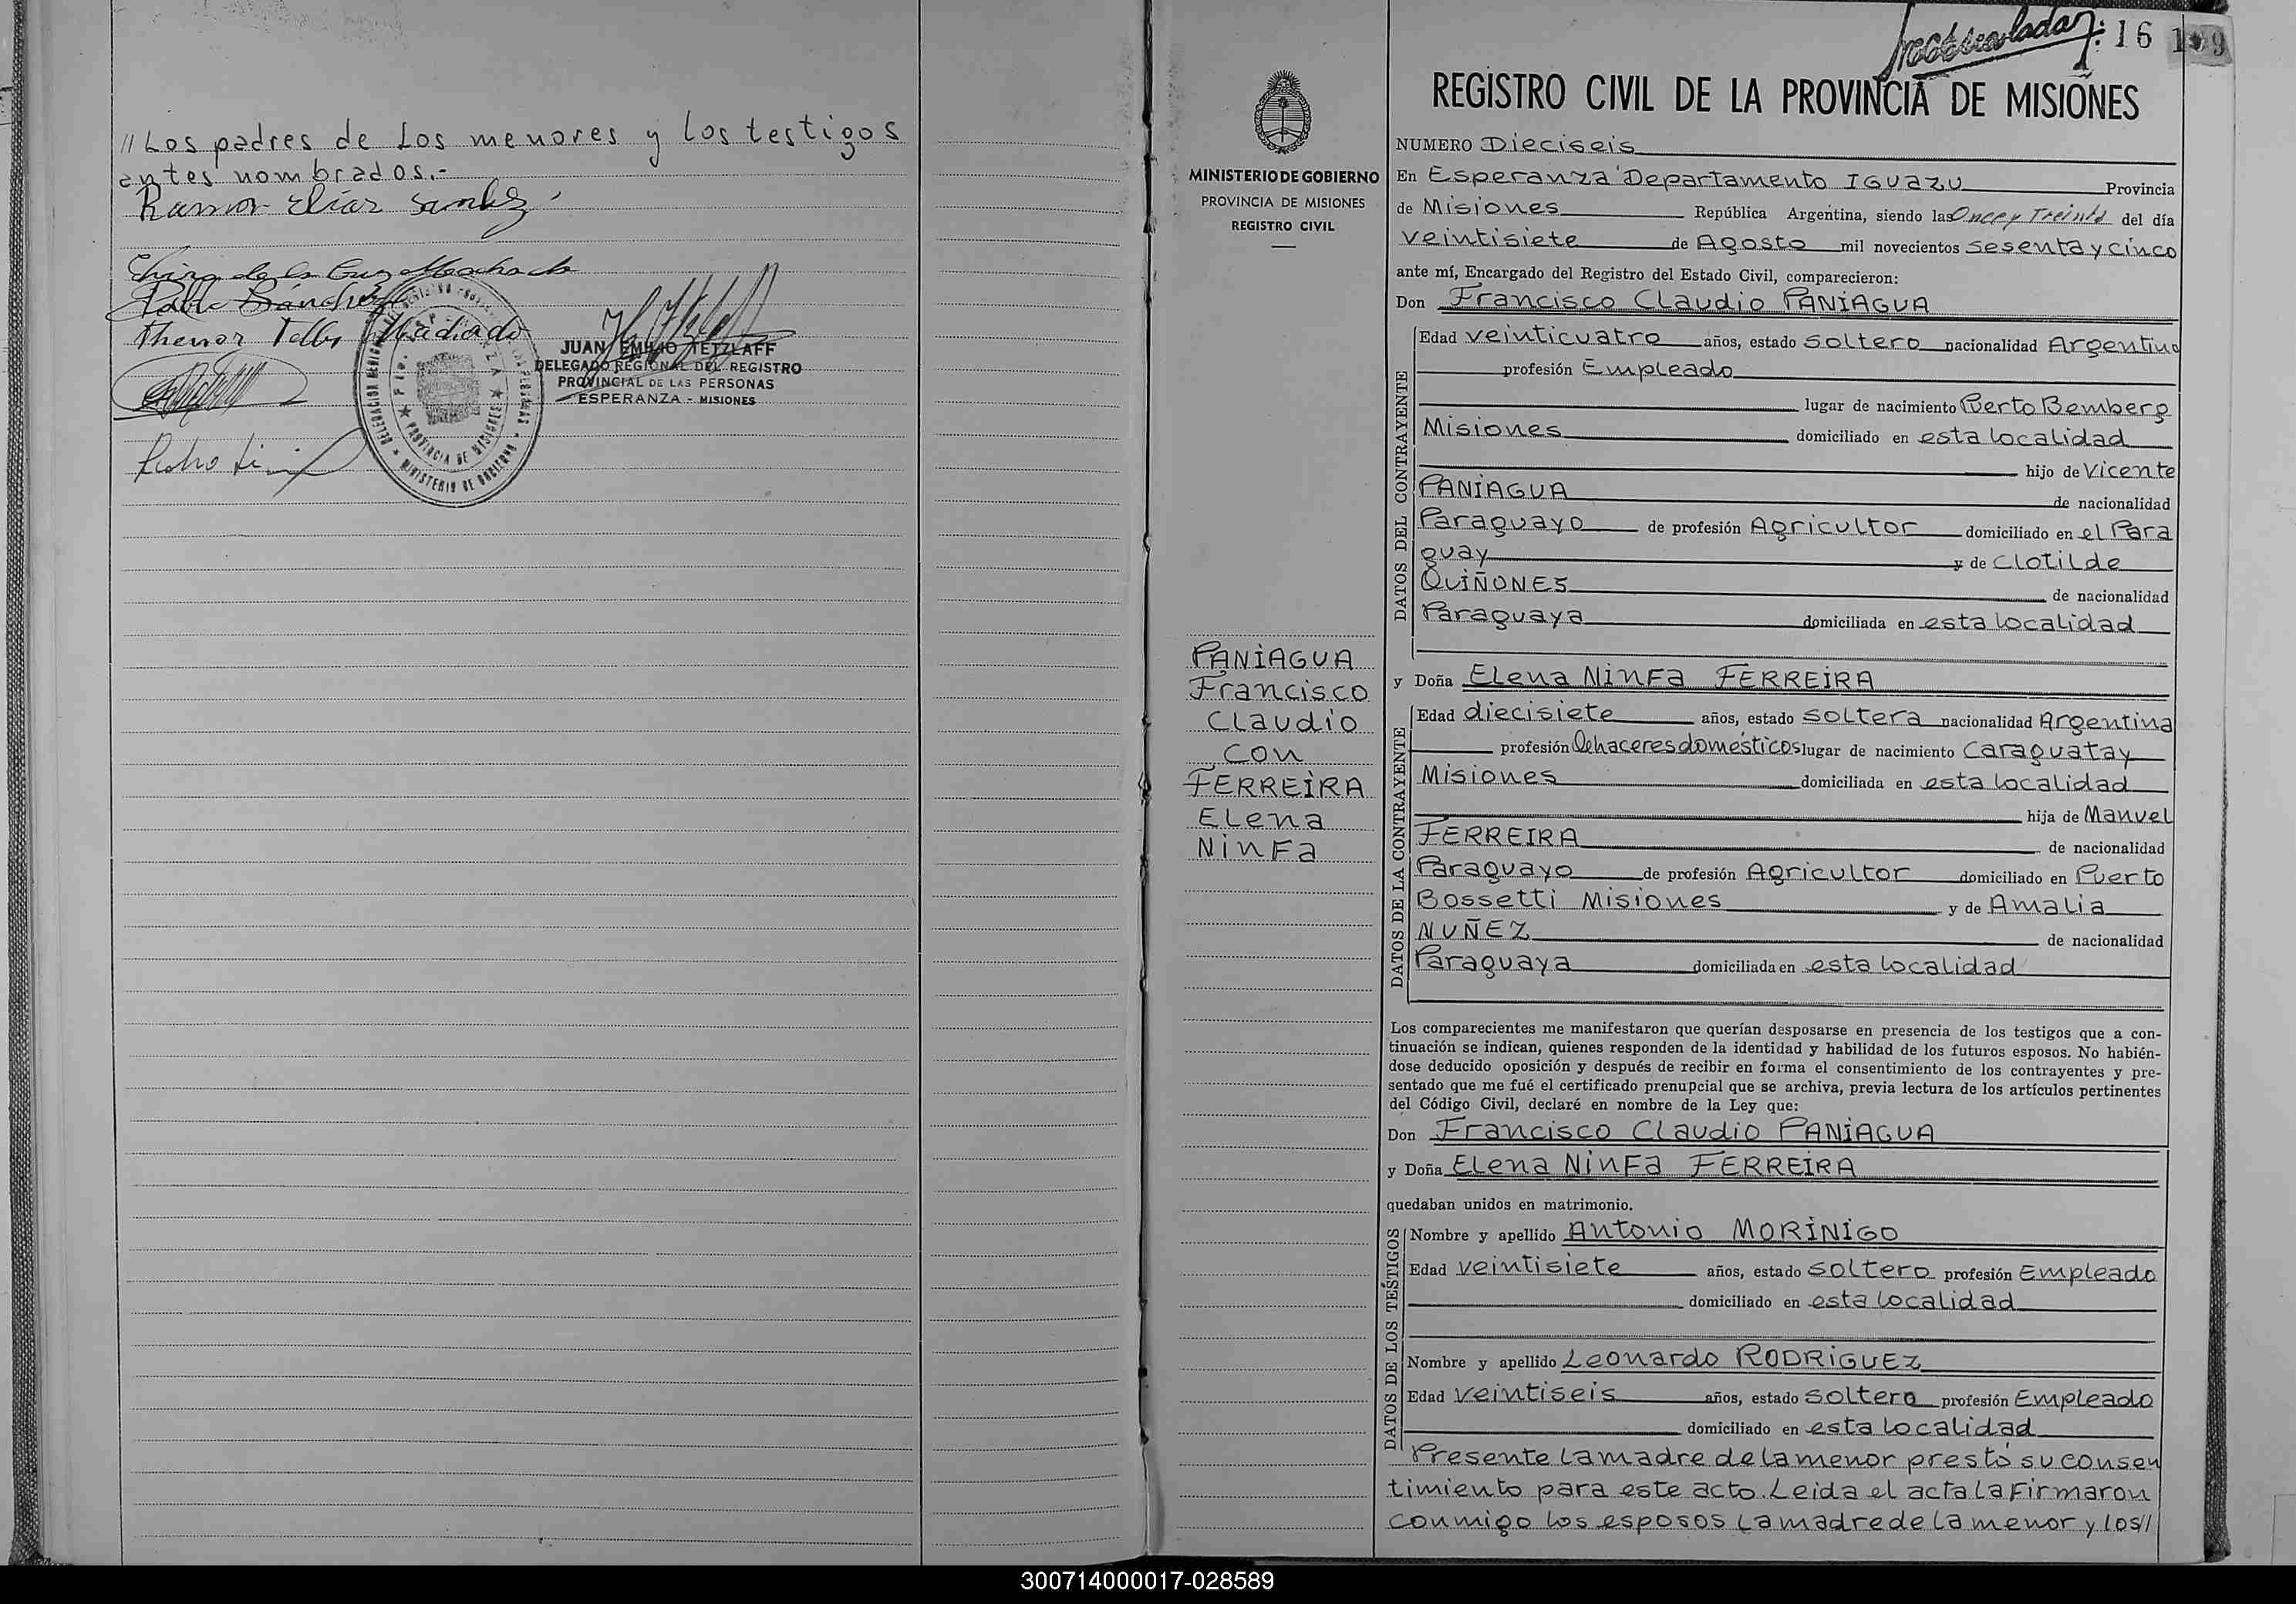 // Los padres de los menores y los testigos
antes nombrados.-
Ramon Elias Sanchez
de la Cruz Machado
Pablo Sánchez
Thenor Tello Machado
JUAN EMILIO TETZLAFF
DELEGADO REGIONAL DEL REGISTRO
PROVINCIAL DE LAS PERSONAS
ESPERANZA - MISIONES
★ PROVINCIA DE MISIONES ★
MINISTERIO DE GOBIERNO
Pedro
16
REGISTRO CIVIL DE LA PROVINCIA DE MISIONES
MINISTERIO DE GOBIERNO
PROVINCIA DE MISIONES
REGISTRO CIVIL
PANIAGUA
Francisco
Claudio
con
FERREIRA
Elena
Ninfa
NUMERO Dieciseis
En Esperanza Departamento IGUAZU Provincia
de Misiones República Argentina, siendo las Once y Treinta del día
veintisiete de Agosto mil novecientos sesenta y cinco
ante mí, Encargado del Registro del Estado Civil, comparecieron:
Don Francisco Claudio PANIAGUA
DATOS DEL CONTRAYENTE
Edad veinticuatro años, estado soltero nacionalidad Argentino
profesión Empleado
lugar de nacimiento Puerto Bemberg
Misiones domiciliado en esta localidad
hijo de Vicente
PANIAGUA de nacionalidad
Paraguayo de profesión Agricultor domiciliado en el Para
guay y de Clotilde
QUIÑONES de nacionalidad
Paraguaya domiciliada en esta localidad
y Doña Elena Ninfa FERREIRA
DATOS DE LA CONTRAYENTE
Edad diecisiete años, estado soltera nacionalidad Argentina
profesión Qehaceres domésticos lugar de nacimiento Caraguatay
Misiones domiciliada en esta localidad
hija de Manuel
FERREIRA de nacionalidad
Paraguayo de profesión Agricultor domiciliado en Puerto
Bossetti Misiones y de Amalia
NUÑEZ de nacionalidad
Paraguaya domiciliada en esta localidad
Los comparecientes me manifestaron que querían desposarse en presencia de los testigos que a con-
tinuación se indican, quienes responden de la identidad y habilidad de los futuros esposos. No habién-
dose deducido oposición y después de recibir en forma el consentimiento de los contrayentes y pre-
sentado que me fué el certificado prenupcial que se archiva, previa lectura de los artículos pertinentes
del Código Civil, declaré en nombre de la Ley que:
Don Francisco Claudio PANIAGUA
y Doña Elena Ninfa FERREIRA
quedaban unidos en matrimonio.
DATOS DE LOS TESTIGOS
Nombre y apellido Antonio MORINIGO
Edad veintisiete años, estado soltero profesión Empleado
domiciliado en esta localidad
Nombre y apellido Leonardo RODRIGUEZ
Edad veintiseis años, estado soltero profesión Empleado
domiciliado en esta localidad
Presente la madre de la menor prestó su consen
timiento para este acto. Leida el acta la firmaron
conmigo los esposos la madre de la menor y los//
300714000017-028589